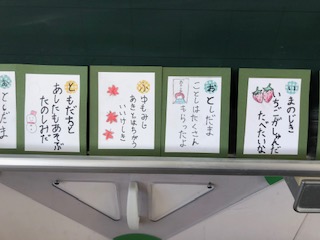 いまのじき
いちごがしゅんだ
たべたいな
おとしだま
ことしはたくさん
もらったよ
ふゆもみじ
あきとはちがう
いいけしき
ともだちと
あしたもあそぶ
たのしみだ
おとしだま